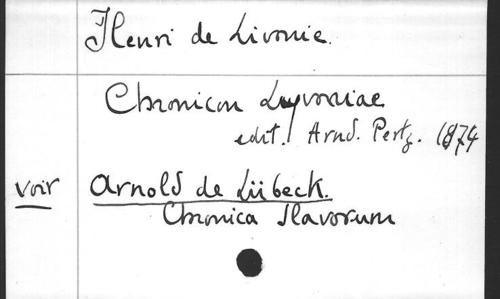 Henri de Livonie.
Chronicon Lyvoniae
edit. Arnd. Pertz. 1874
voir Arnold de Lübeck.
Chronica Slavorum